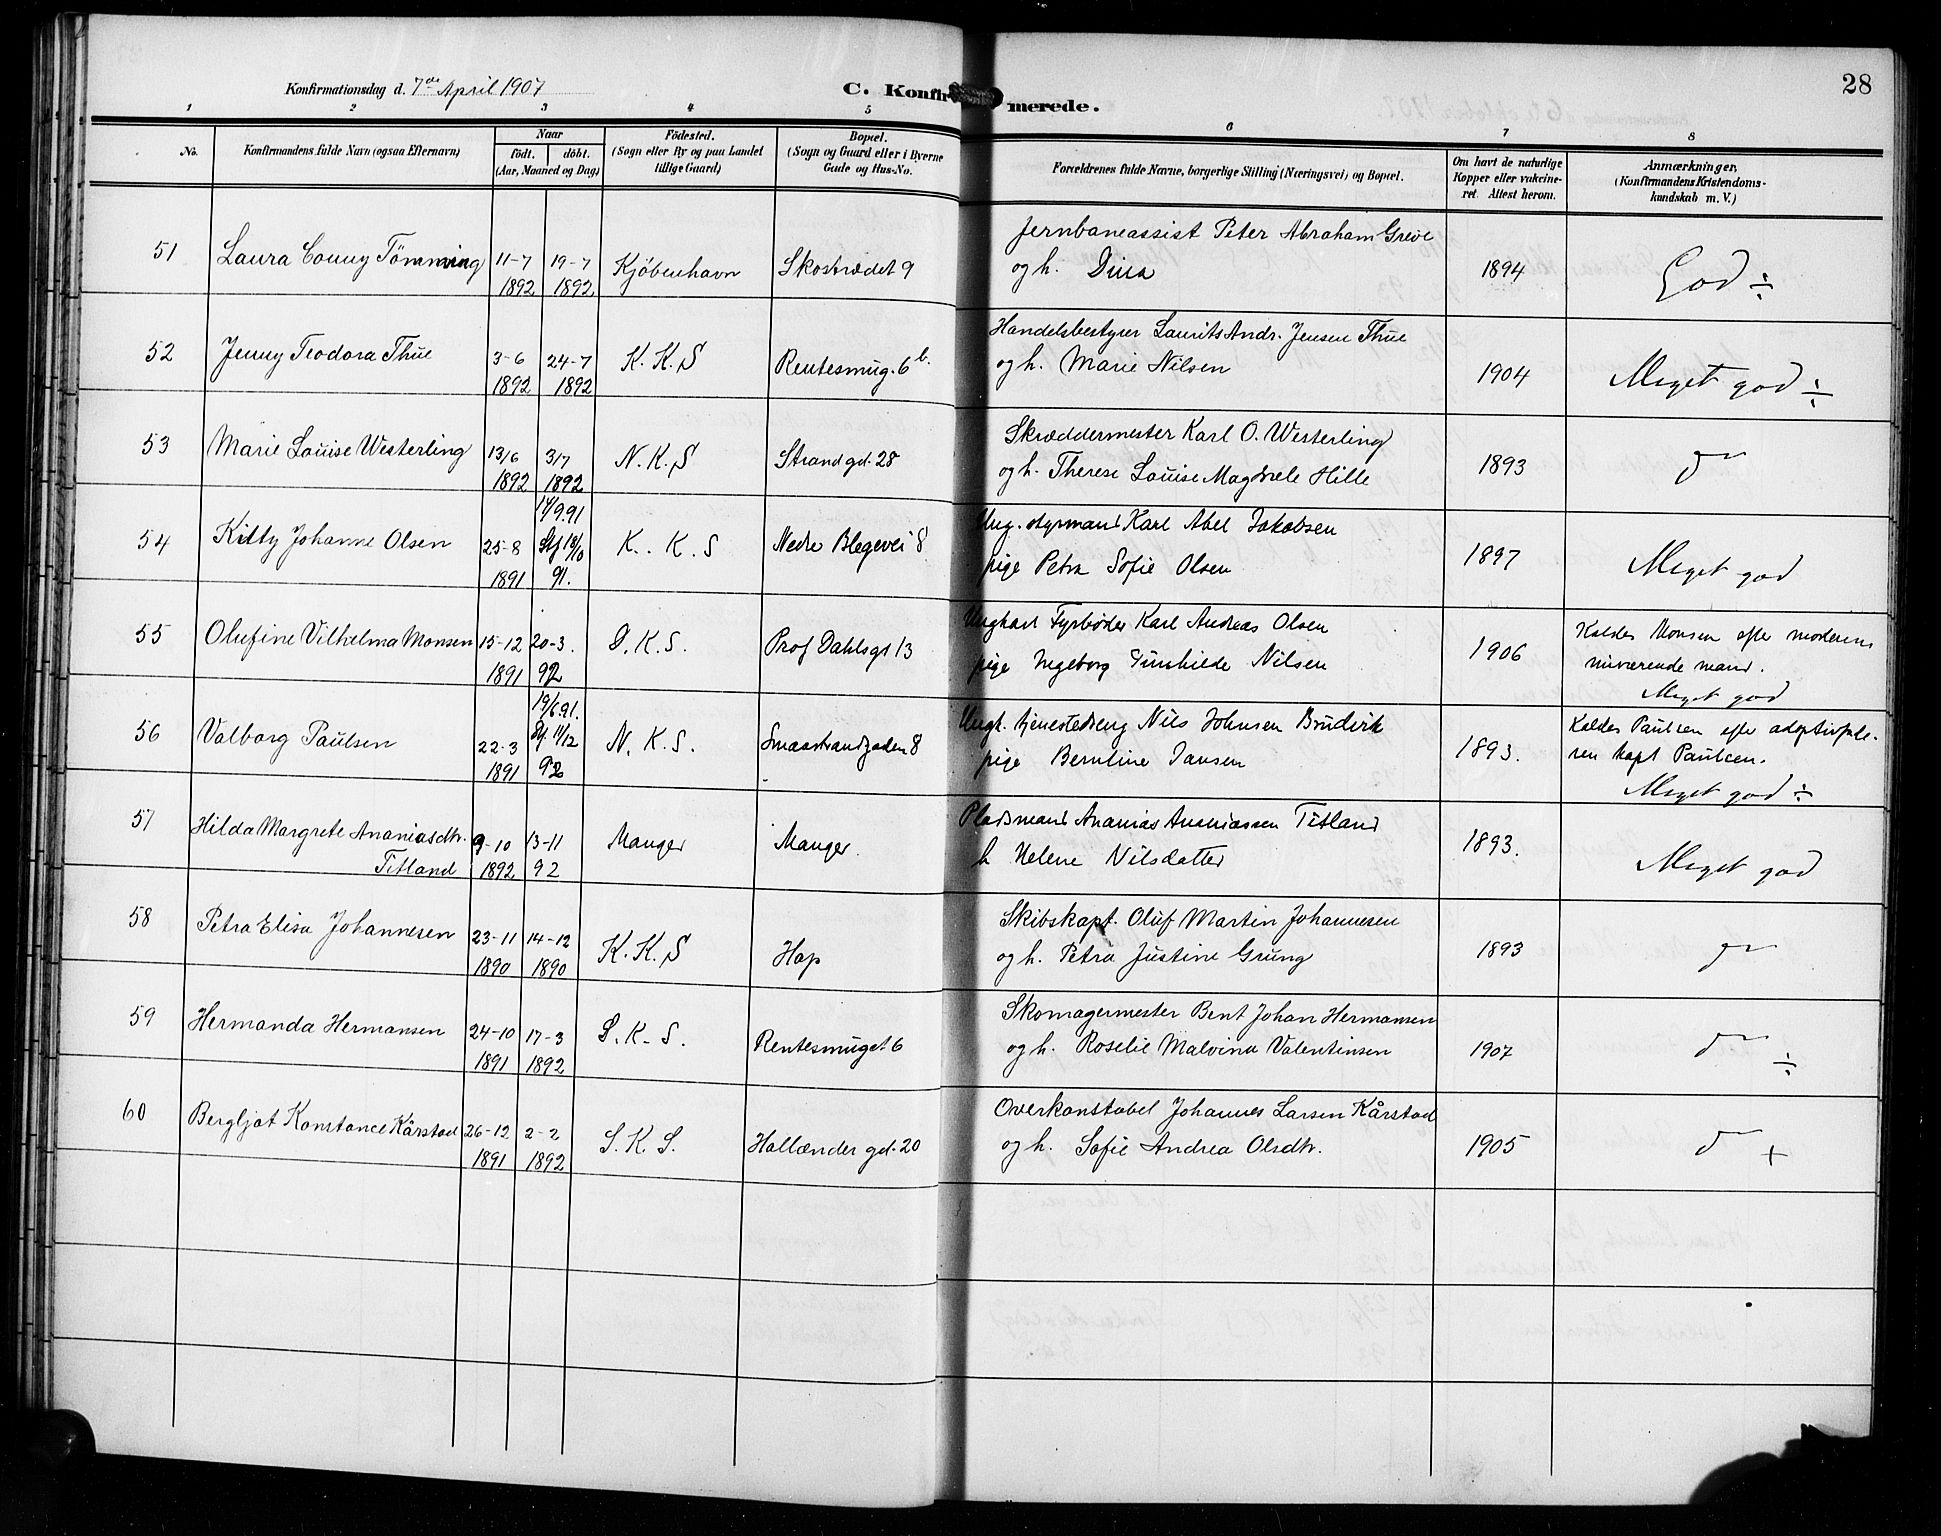 Konfirmationsdag d. 7de April 1907
C. Konfirmerede.
28
1 2 3 4 5 6 7 8
No.
Konfirmandens fulde Navn (ogsaa Efternavn)
Naar
födt. döbt.
(Aar, Maaned og Dag)
Födested.
(Sogn eller By og paa Landet
tillige Gaard)
Bopæl.
(Sogn og Gaard eller i Byerne
Gade og Hus-No.
Forældrenes fulde Navne, borgerlige Stilling (Næringsvei) og Bopæl.
Om havt de naturlige
Kopper eller vakcine-
ret. Attest herom.
Anmærkninger,
(Konfirmandens Kristendoms-
kundskab m. V.)
51 Laura Conny 11-7 1892 19-7 1892 Kjøbenhavn Skostrædet 9
Jernbaneassist Peter Abraham Greve
og h. Dina 1894 God ÷
52 Jenny Teodora Thue 3-6 1892 24-7 1892 K. K. S Rentesmug. 6 b.
Handelsbestyrer Laurits Andr. Jensen Thue
og h. Marie Nilsen 1904 Meget god ÷
53 Marie Louise Westerling 13/6 1892 3/7 1892 N. K. S Strandgd. 28
Skræddermester Karl O. Westerling
og h. Therese Louise Magdrele Hille 1893 do
54 Kitty Johanne Olsen 25-8 1891 14/9.91 Stf 18/10 91. K. K. S Nedre Blegevei 8
Ung. styrmand Karl Abel Jakobsen
pige Petra Sofie Olsen 1897 Meget god
55 Olufine Vilhelma Monsen 15-12 1891 20-3. 92 D. K. S. Prof Dahlsgt 13
Ungkarl Fyrbøder Karl Andreas Olsen
pige Ingeborg Gunhilde Nilsen 1906
Kaldes Monsen efter moderens
nuværende mand.
Meget god
56 Valborg Paulsen 22-3 1891 19/6 91. 11/12 92 N. K. S. Smaastrandgaden 8
Ungk. tjenestedreng Nils Johnsen Brudvik
pige Berntine Jansen 1893.
Kaldes Paulsen efter adoptivfale-
ren kapt Paulsen.
Meget god ÷
57 Hilda Margrete Ananiasdtr.
Titland 9-10 1892 13-11 92 Manger Manger.
Pladsmand Ananias Ananiassen Titland
h Helene Nilsdatter 1893. Meget god
58 Petra Elisa Johannesen 23-11 1890 14-12 1890 K. K. S Hop
Skibskapt. Oluf Martin Johannesen
og h. Petra Justine Grung 1893 do
59 Hermanda Hermansen 24-10 1891 17-3 1892 S. K. S. Rentesmuget 6
Skomagermester Bent Johan Hermansen
og h. Roselie Malvina Valentinsen 1907 do ÷
60 Bergljot Konstance Kårstad 26-12 1891 2-2 1892 S. K. S. Hollænder gd. 20
Overkonstabel Johannes Larsen Kårstad
og h. Sofie Andrea Olsdtr. 1905 do +